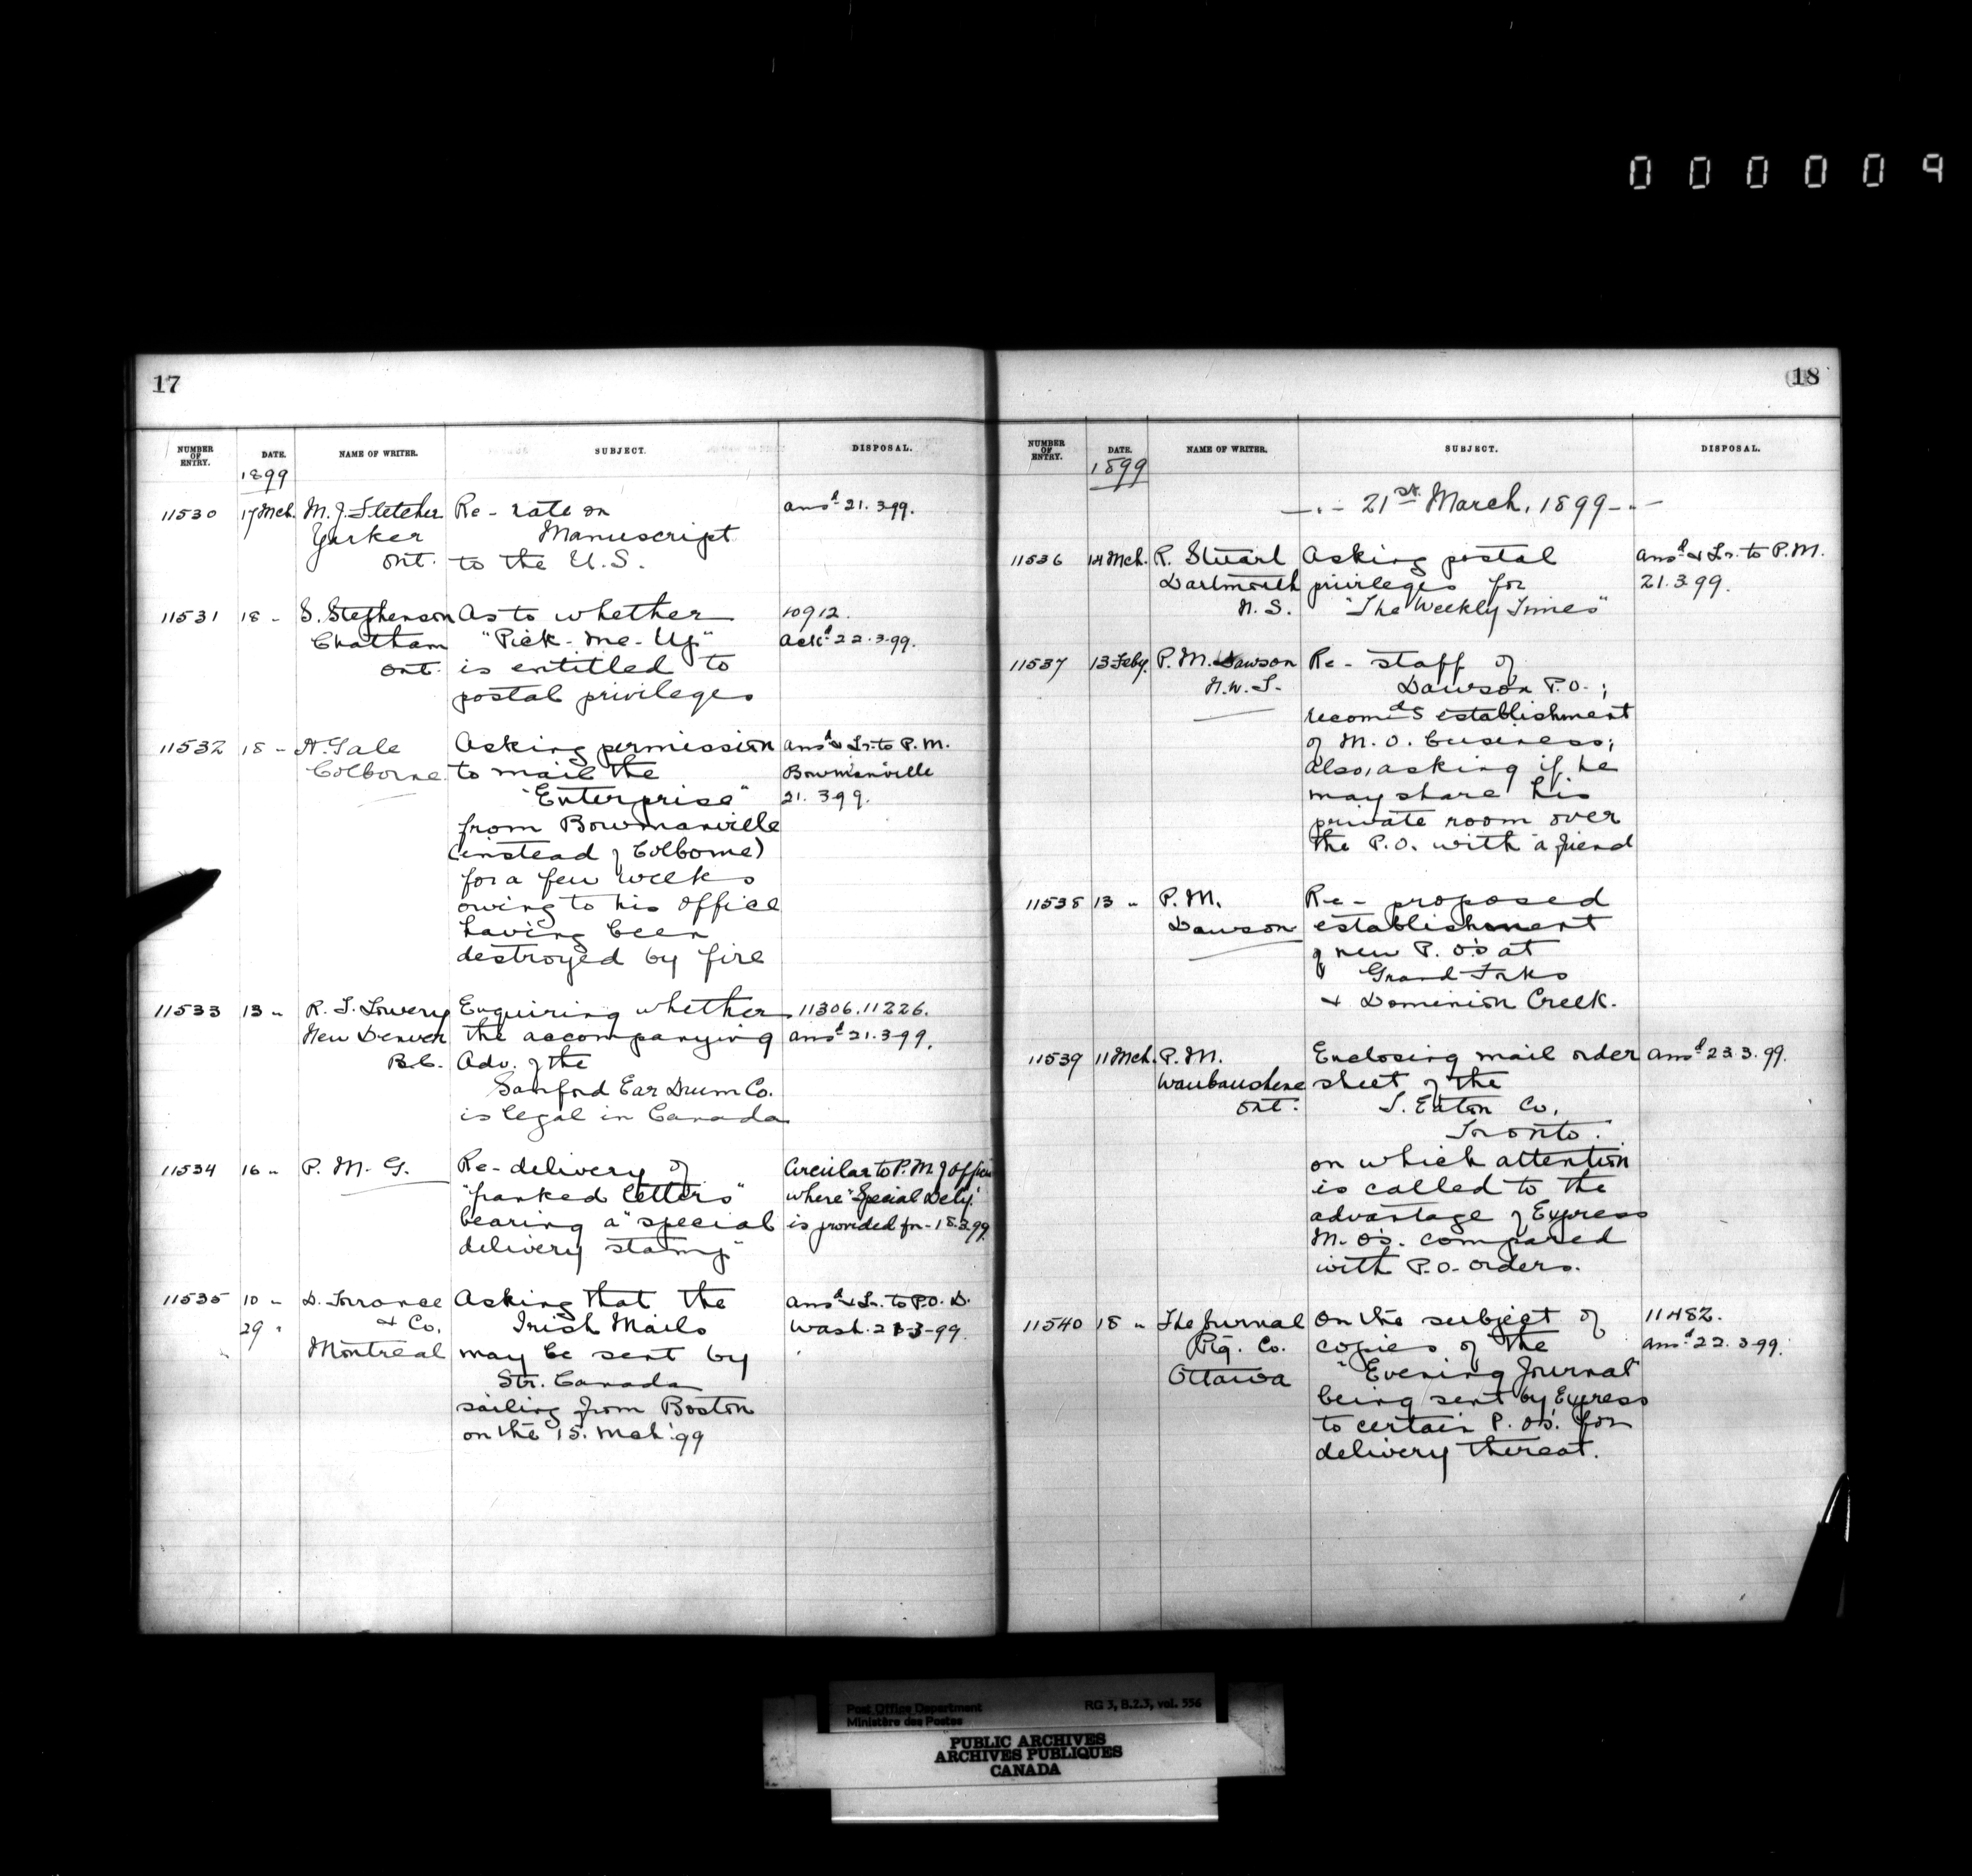 000009
17
NUMBER OF ENTRY. DATE. NAME OF WRITER. SUBJECT. DISPOSAL.
1899
11530 17 Mch. M. J. Fletcher Re- rate on ansd 21.3.99.
Yarker Manuscript
Ont. to the U.S.
11531 18 " S. Stephenson As to whether 10912.
Chatham "Pick-Me-Up" ackd 22.3.99.
Ont. is entitled to
postal privileges
11532 18 " Gale Asking permission ansd & Lr. to P.M.
Colborne to mail the Bowmanville
"Enterprise" 21.3.99.
from Bowmanville
(instead of Colborne)
for a few weeks
owing to his office
having been
destroyed by fire
11533 13 " R. T. Lowery Enquiring whether 11306.11226.
New Denver the accompanying ansd 21.3.99.
B.C. Adv. of the
Sanford Ear Drum Co.
is legal in Canada
11534 16 " P. M. G. Re- delivery of Circular to P.M. of offices
"franked letters" where "Special Dely."
bearing a "special is provided for - 18.3.99
delivery stamp"
11535 10 " D. Torrance Asking that the ansd & Lr. to P.O.D.
29 " & Co. Irish Mails Wash. 21-3-99.
Montreal may be sent by
Str. Canada
sailing from Boston
on the 15. Mch. '99
18
NUMBER OF ENTRY. DATE. NAME OF WRITER. SUBJECT. DISPOSAL.
1899
21st March, 1899
11536 14 Mch. R. Stuart Asking postal ansd & Lr. to P.M.
Dartmouth privileges for 21.3.99.
N.S. "The Weekly Times"
11537 13 Feby. P.M. Dawson Re- staff of
N.W.T. Dawson P.O.;
recomds establishment
of M.O. business;
also, asking if he
may share his
private room over
the P.O. with a friend
11538 13 " P.M. Re- proposed
Dawson establishment
of new P.O's at
Grand Forks
& Dominion Creek.
11539 11 Mch. P.M. Enclosing mail order ansd 23.3.99.
Waubaushene sheet of the
Ont. T. Eaton Co.
Toronto.
on which attention
is called to the
advantage of Express
M.O's. compared
with P.O. orders.
11540 18 " The Journal On the subject of 11482.
Ptg. Co. copies of the ansd 22.3.99.
Ottawa "Evening Journal"
being sent by Express
to certain P.O's. for
delivery thereat.
Post Office Department RG 3, B.2.3, vol. 556
Ministère des Postes
PUBLIC ARCHIVES
ARCHIVES PUBLIQUES
CANADA